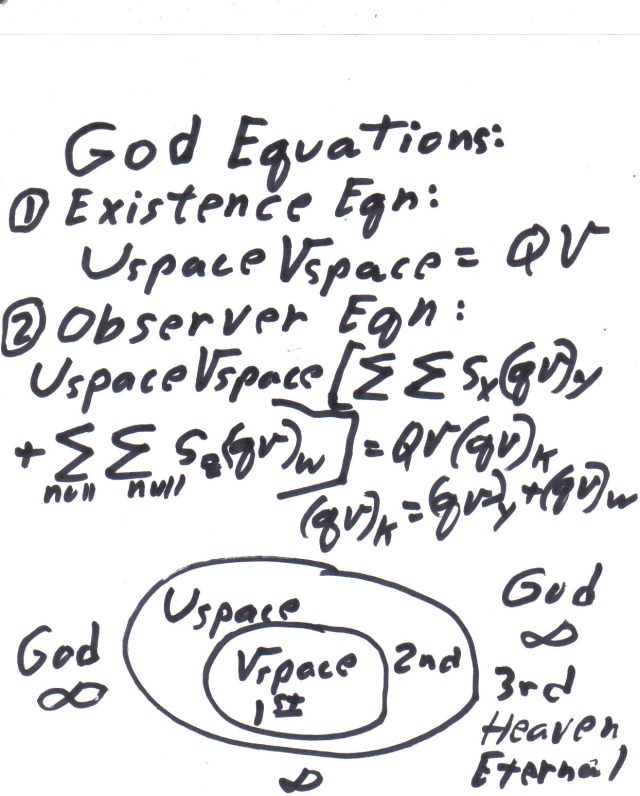 God Equations:
① Existence Eqn:
Uspace Vspace = QV
② Observer Eqn:
Uspace Vspace [Σ Σ Sx(qv)y
+ Σ Σ Sz(qv)w] = QV(qv)K
null null
(qv)K = (qv)y + (qv)w
Uspace
God
∞
Vspace
1st
2nd
∞
God
∞
3rd
Heaven
Eternal